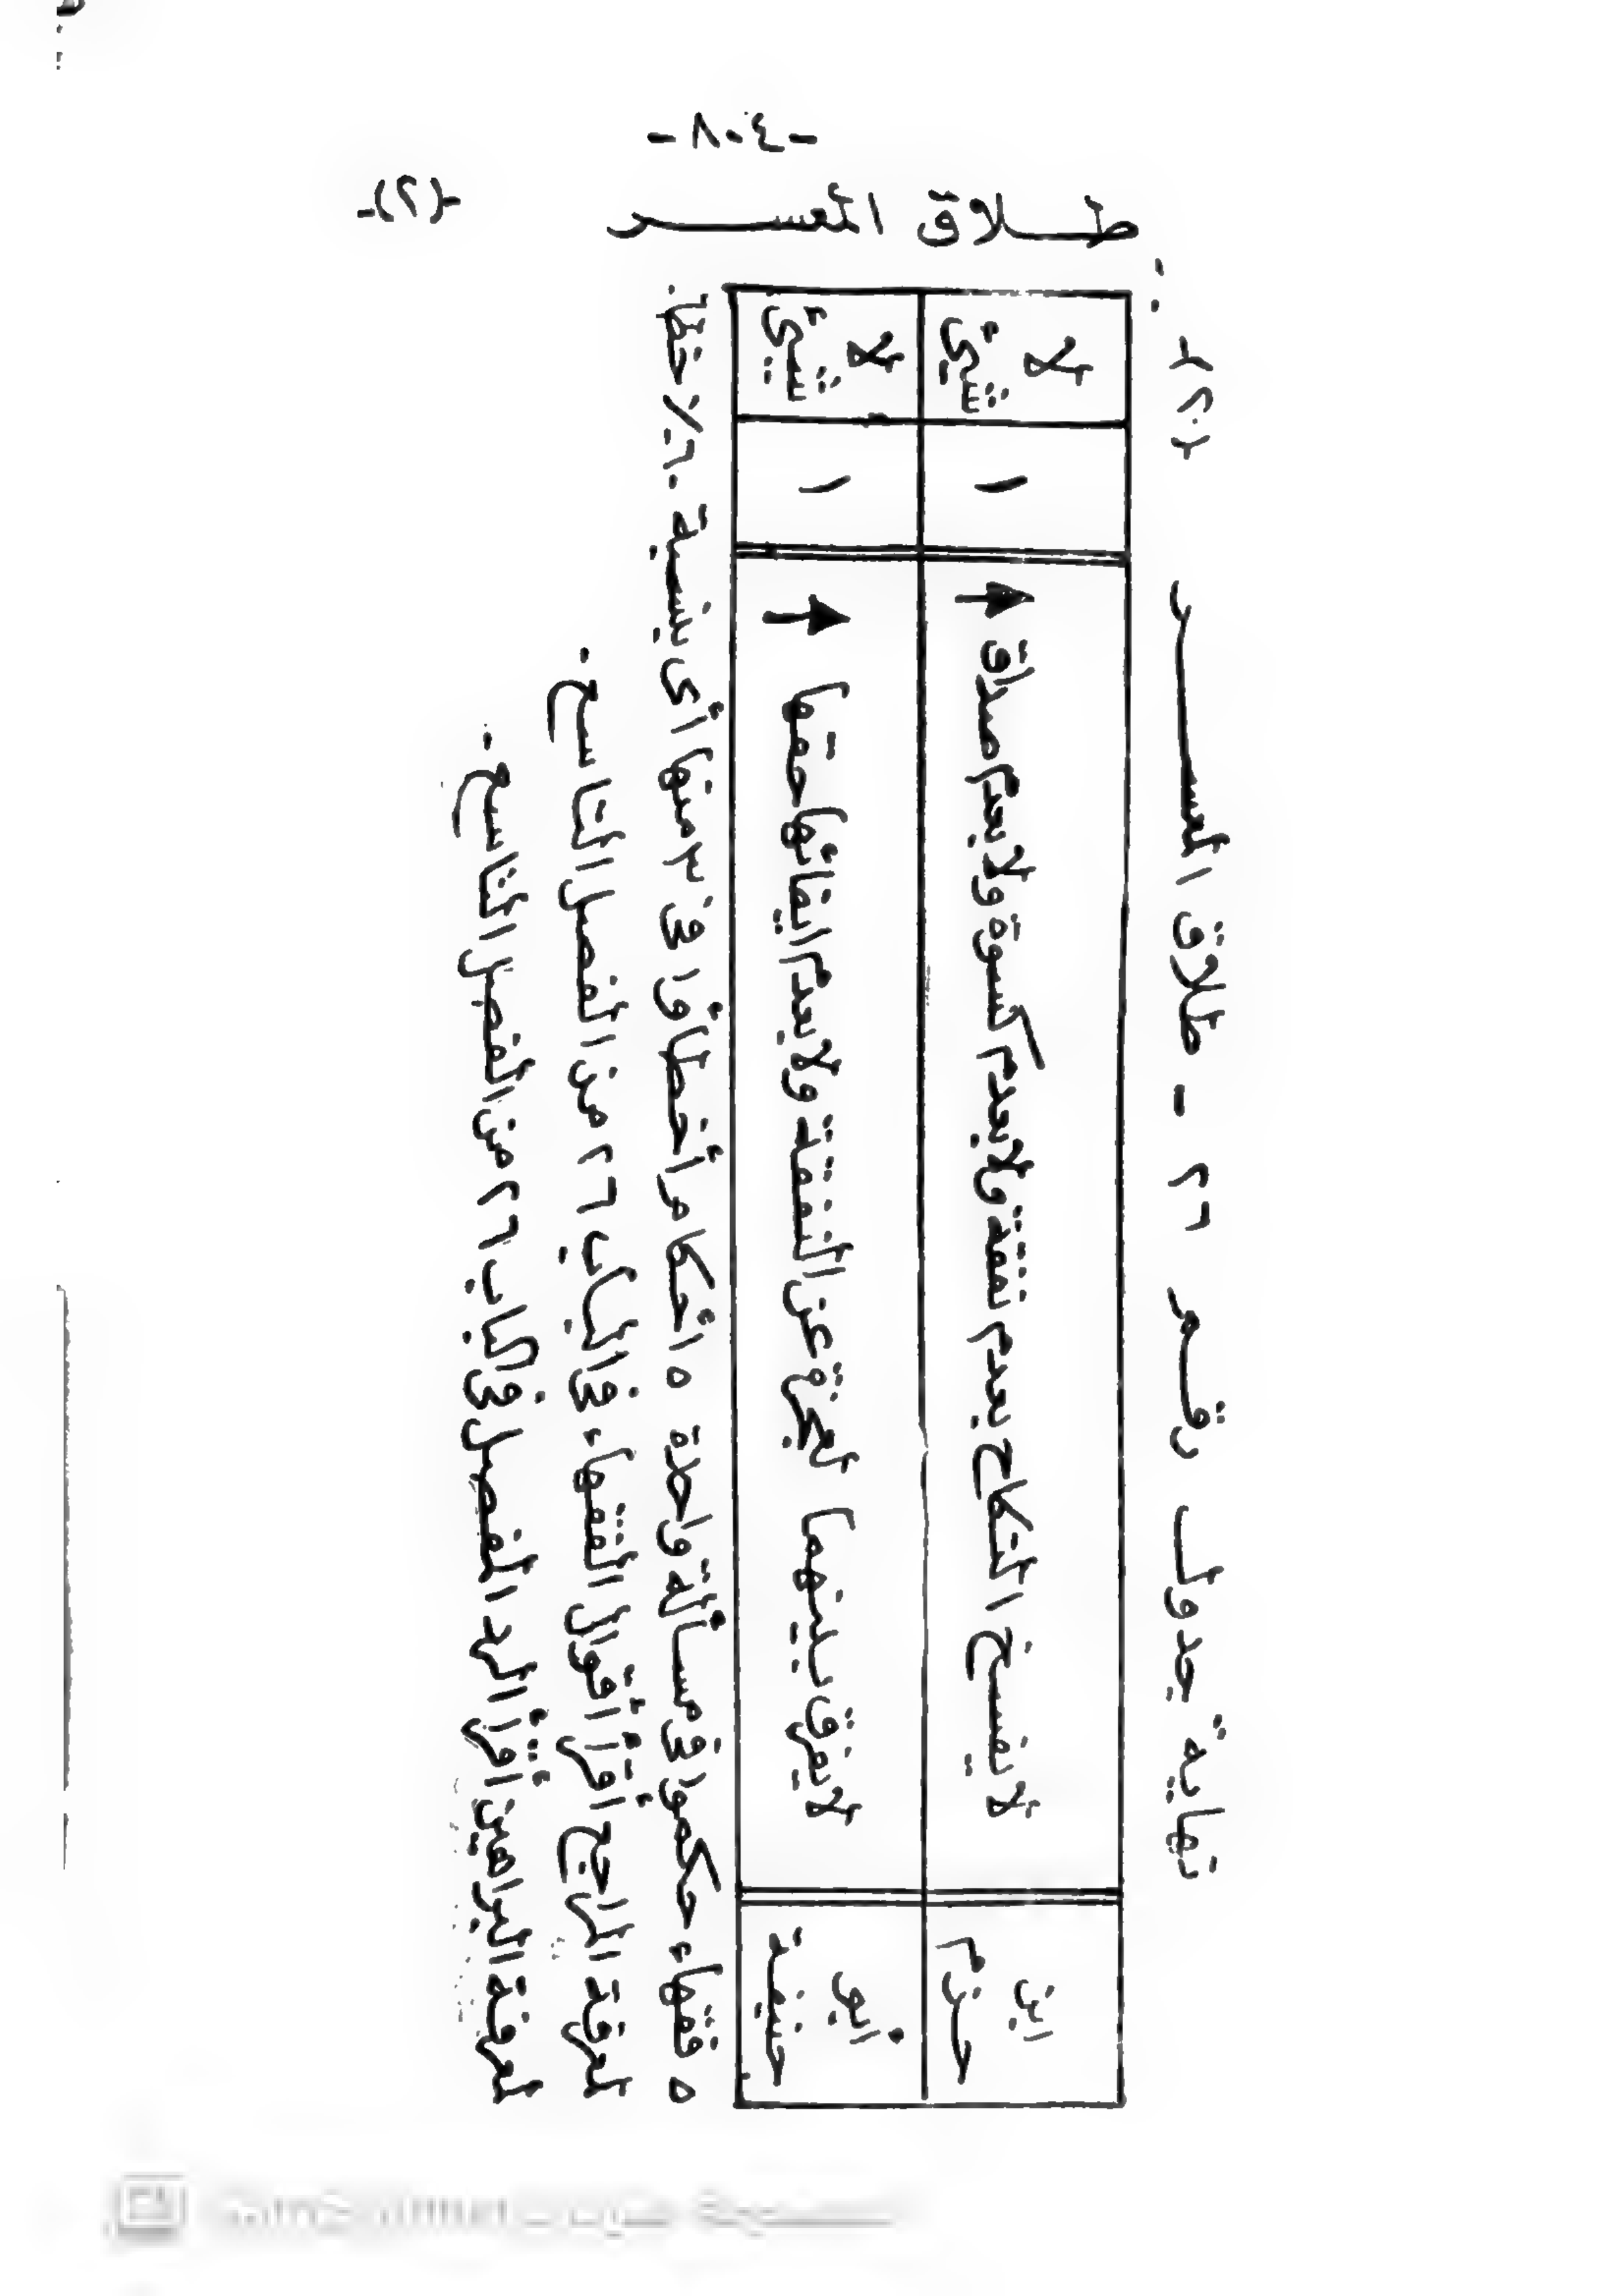 -٤٠٨-
طلاق المعسر -(٢)-
نهاية جدول رقم ٢٦ - طلاق المعسر
ابن حزم
لا يفسخ النكاح بعدم نفقة ولا بعدم كسوة ولا بعدم صداق
١
لا شيء
أبو حنيفة
لا يفرق بينهما لعجزه عن النفقة ولا بعدم إيفائها حقها
١
لا شيء
٥ فقهاء حكموا في مسألة واحدة ٥ أحكام أخطأوا في ٣ منها أي بنسبة ٦٠٪ خطأ.
لمعرفة الراجح اقرأ أقوال الفقهاء في الباب ٢٦ من الفصل التاسع.
لمعرفة البراهين اقرأ الرد المفصل في الباب ٢٦ من الفصل التاسع.